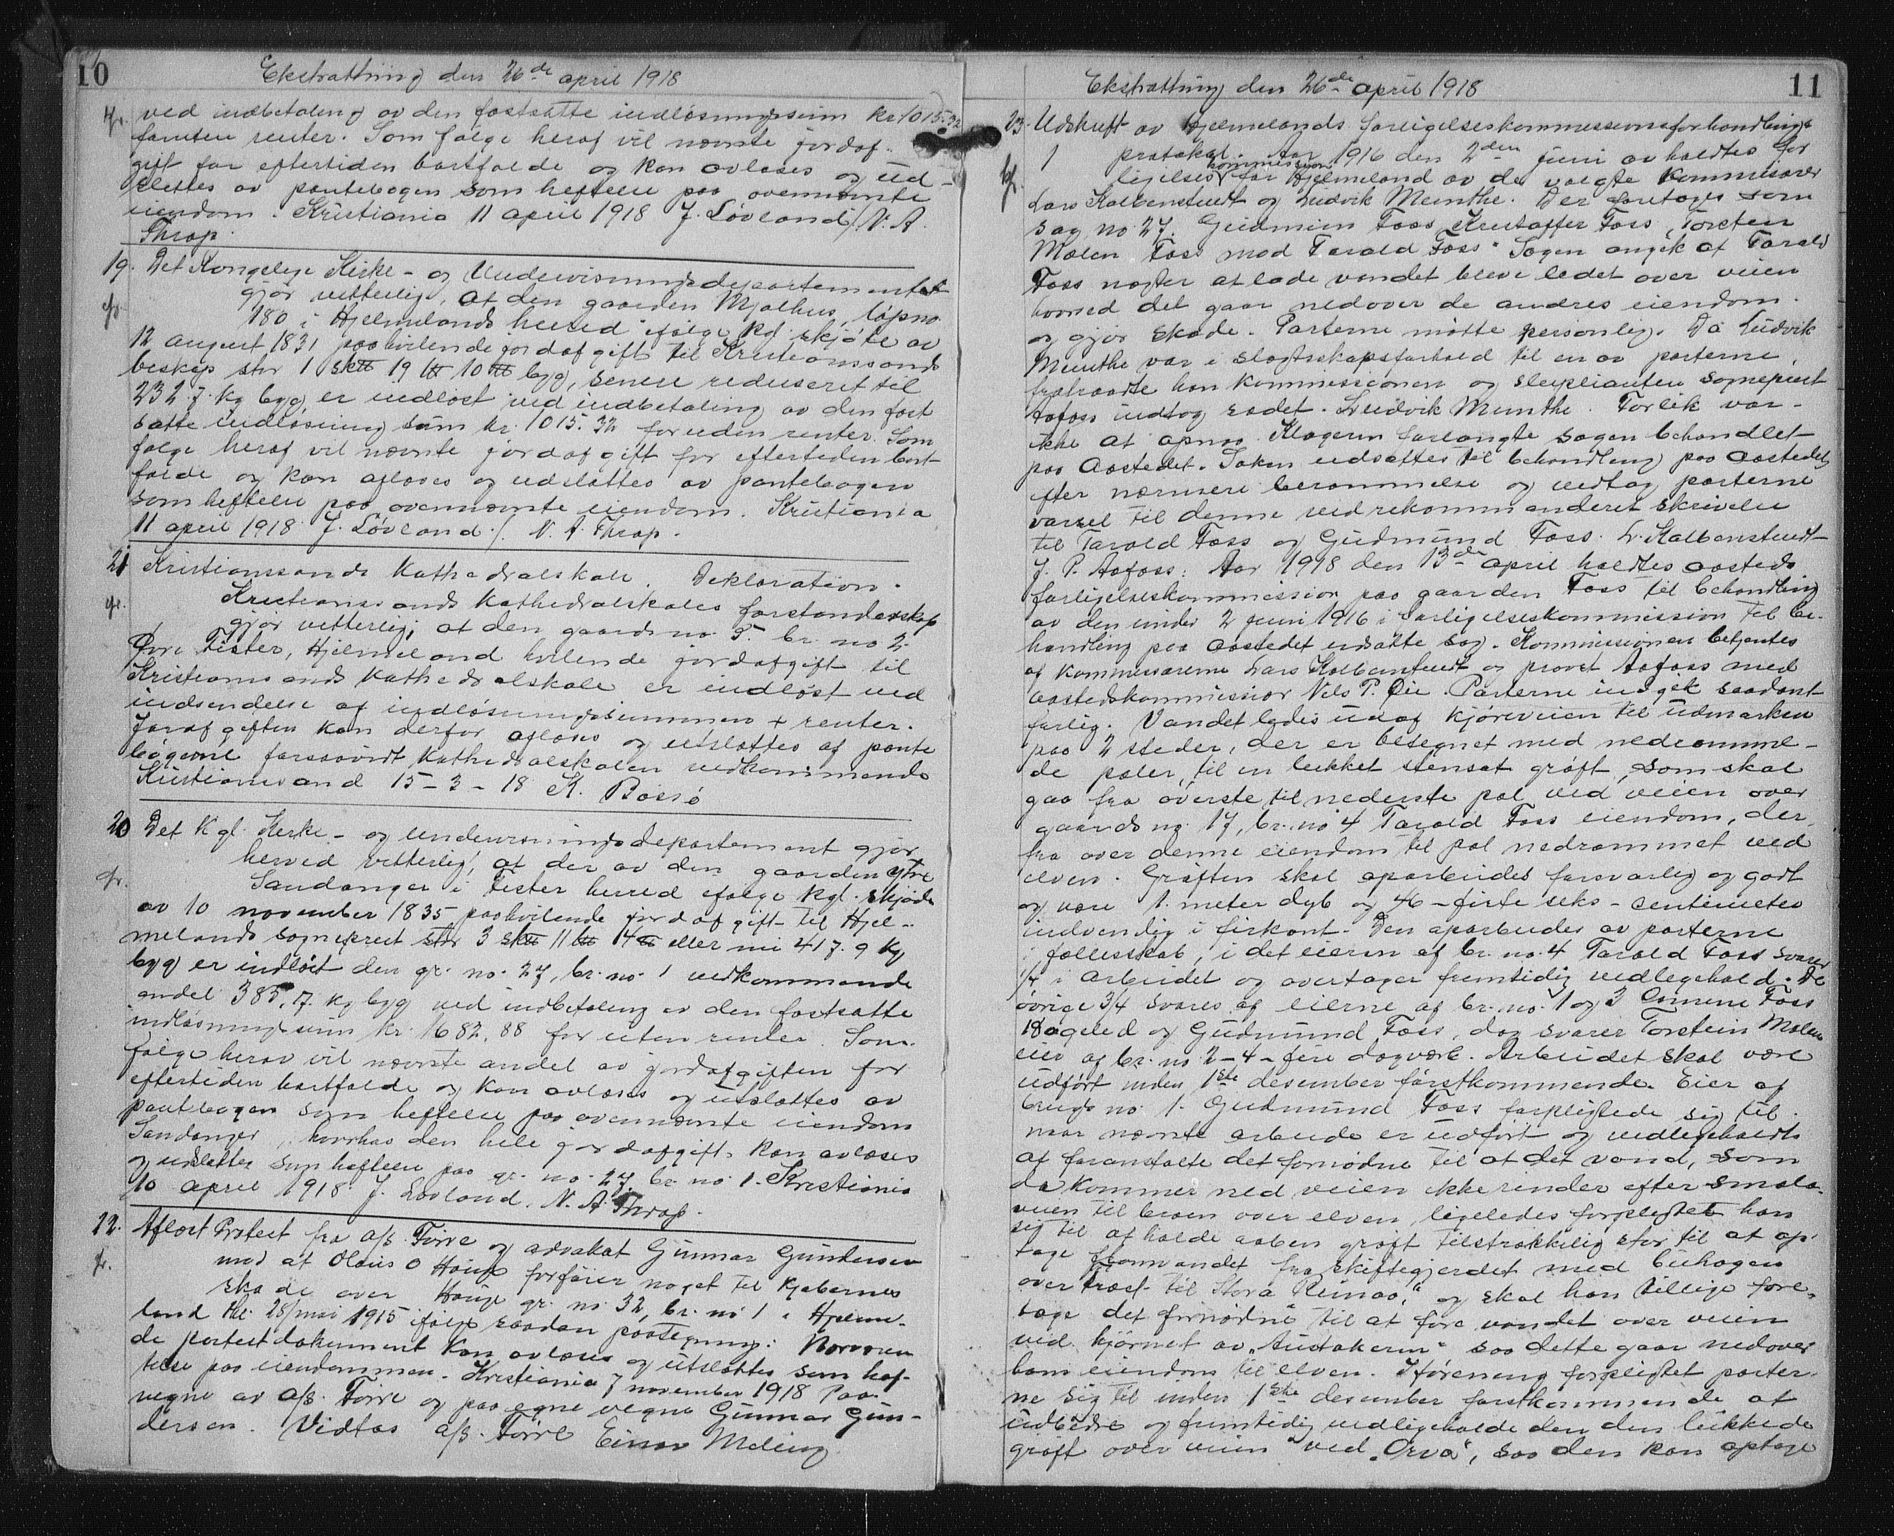 10
Ekstratting den 26de april 1918
ved indbetaling av den fastsatte indløsningssum kr 1015.32
foruten renter. Som følge heraf vil nævnte jordaf-
gift for eftertiden bortfalde og kan avløses og ud-
slettes av pantebogen som heftelse paa ovennævnte
eiendom. Kristiania 11 april 1918 J. Løvland / N. A.
Thrap.
19. Det Kongelige Kirke- og Undervisningsdepartementet
gjør vitterlig, at den gaarden Mjølhus, løpno
180 i Hjelmelands herred ifølge kgl. skjøte av
12 august 1831 paahvilende jordafgift til Kristianssands
beskip stor 1 sk℔ 19 ℔ 10 ℔ byg, senere reduseret til
232.7 kg byg er indløst ved indbetaling av den fast
satte indløsning sum kr. 1015.32 foruden renter. Som
følge heraf vil nævnte jordafgift for eftertiden bort
falde og kan afløses og udslettes av pantebogen
som heftelse paa ovennævnte eiendom. Kristiania
11 april 1918 J. Løvland / N. A. Thrap.
21 Kristianssands Kathedralskole. Deklaration.
Kristianssands Kathedralskoles forstanderskap
gjør vitterlig, at den gaards no. 5 br. no 2
Øvre Fister, Hjelmeland hvilende jordafgift til
Kristianssands Kathedralskole er indløst ved
indsendelse af indløsningssummen + renter.
Jordafgiften kan derfor afløses og udslettes af pante
bøgerne forsaavidt Kathedralskolen vedkommende
Kristianssand 15-3-18 K. Bassö
20 Det Kgl. Kirke- og undervisningsdepartement gjør
herved vitterlig, at der av den gaarden Ytre
Sandanger i Fister herred ifølge kgl. skjøde
av 10 november 1835 paahvilende jordafgift til Hjel-
melands sogneprest stor 3 sk℔ 11 ℔ 14 ℔ eller nu 417.9 kg
byg er indløst den gr. no. 27, br. no. 1 vedkommende
andel 385.7 kg byg ved indbetaling av den fastsatte
indløsningssum kr. 1682.88 foruten renter. Som
følge herav vil nævnte andel av jordafgiften for
eftertiden bortfalde og kan avløses og utslettes av
pantebogen som heftelse paa ovennævnte eiendom
Sandanger, hvorhos den hele jordafgift kan avløses
og udslettes som heftelse paa gr. no. 27, br. no. 1. Kristiania
10 april 1918 J. Løvland. N. A. Thrap.
22. Aflæst Protest fra a/s Torre og advokat Gunnar Gundersen
mod at Olaus O Hauge forføier noget til kjøbernes
skade over Hauge gr. no 32, br. no 1 i Hjelme-
land tkl. 28/mai 1915 ifølge saadan paategning: Nærværen
de protestdokument kan avløses og utslettes som hef-
telse paa eiendommen. Kristiania 7 november 1918 Paa
vegne av a/s. Torre og paa egne vegne Gunnar Gun-
dersen. Vidtas a/s. Torre Einar Meling.
11
Ekstratting den 26de april 1918
23. Udskrift av Hjelmelands forligelseskommissionsforhandlings-
protokol. Aar 1916 den 2den juni avholdtes for
ligelseskommission for Hjelmeland av de valgte kommisærer
Lars Kalbenstvedt og Ludvik Munthe. Der foretoges som
sag no. 27. Gudmun Foss Kristoffer Foss, Torsten
Molen Foss mod Tarald Foss. Sagen angik at Tarald
Foss nægter at lade vandet blive ledet over veien
hvorved det gaar nedover de andres eiendom
og gjør skade. Parterne møtte personlig. Da Ludvik
Munthe var i slegtsskapsforhold til en av parterne,
fratraadte han kommissionen og suplianten sogneprest
Aafoss indtog sædet. Ludvik Munthe. Forlik var
ikke at opnaa. Klageren forlangte sagen behandlet
paa aastedet. Saken udsættes til behandling paa aastedet
efter nærmere berammelse og vedtog parterne
varsel til denne ved rekommanderet skrivelse
til Tarald Foss og Gudmund Foss. L. Kalbenstvedt
J. P. Aafoss: Aar 1918 den 13de april holdtes aasteds
forligelseskommission paa gaarden Foss til behandling
av den under 2 juni 1916 i forligelseskommission til be-
handling paa aastedet utsatte sag. Kommissionen betjentes
af kommissærerne Lars Kalbenstvedt og provst Aafoss med
aastedskommissær Nils P. Øie. Parterne indgik saadant
forlig. Vandet ledes ud af kjøreveien til udmarken
paa 2 steder, der er betegnet med nedramme-
de pæler, til en lukket stensat grøft, som skal
gaa fra øverste til nederste pæl ved veien over
gaards no. 17, br. no 4 Tarald Foss eiendom, der-
fra over denne eiendom til pæl nedrammet ved
elven. Grøften skal oparbeides forsvarlig og godt
og være 1. meter dyb og 46 - firti seks - centimeter
indvendig i firkant. Den oparbeides av parterne
i fællesskab, i det eieren af br. no. 4 Tarald Foss svarer
1/4 i arbeidet og overtager fremtidig vedligehold. De
øvrige 3/4 svares af eierne af br. no. 1 og 3 Foss
og Gudmund Foss, dog svarer Torstein Molen
eier af br. no 2 - 4 - fire dagværk. Arbeidet skal være
udført inden 1ste desember førstkommende. Eier af
brugs no. 1. Gudmund Foss forpligtede sig til
naar nævnte arbeide er udført og vedligeholdt
at foranstalte det fornødne til at det vand, som
da kommer ned veien ikke render efter smala-
veien til broen over elven, ligeledes forpligtet han
sig til at holde aaben grøft tilstrækkelig stor til at op-
tage fra skiftegjerdet med buhagen
over til "Stora Reinaa," og skal han tillige fore-
tage det fornødne til at føre vandet over veien
ved hjørnet av "Austakern" saa dette gaar nedover
hans eiendom til elven. Iførening forpligtet parter-
ne sig til inden 1ste desember førstkommende at
udbedre og fremtidig vedligeholde den den lukkede
grøft over veien ved "Orva", saa den kan optage